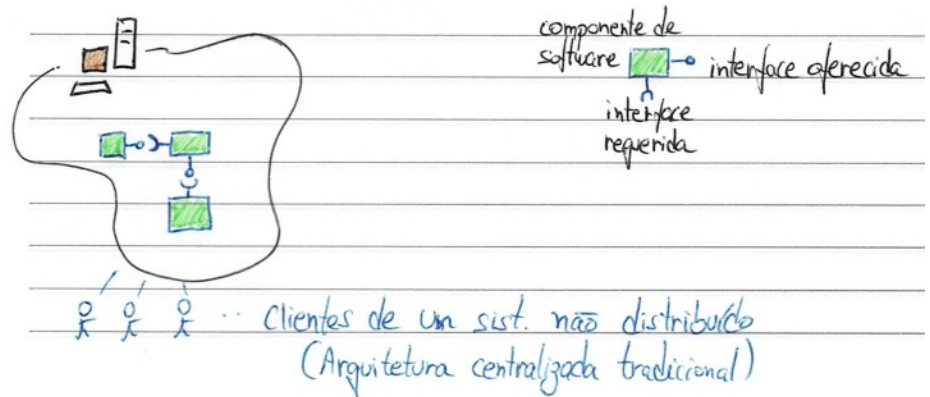 componente de
software
interface oferecida
interface
requerida
... Clientes de um sist. não distribuído
(Arquitetura centralizada tradicional)